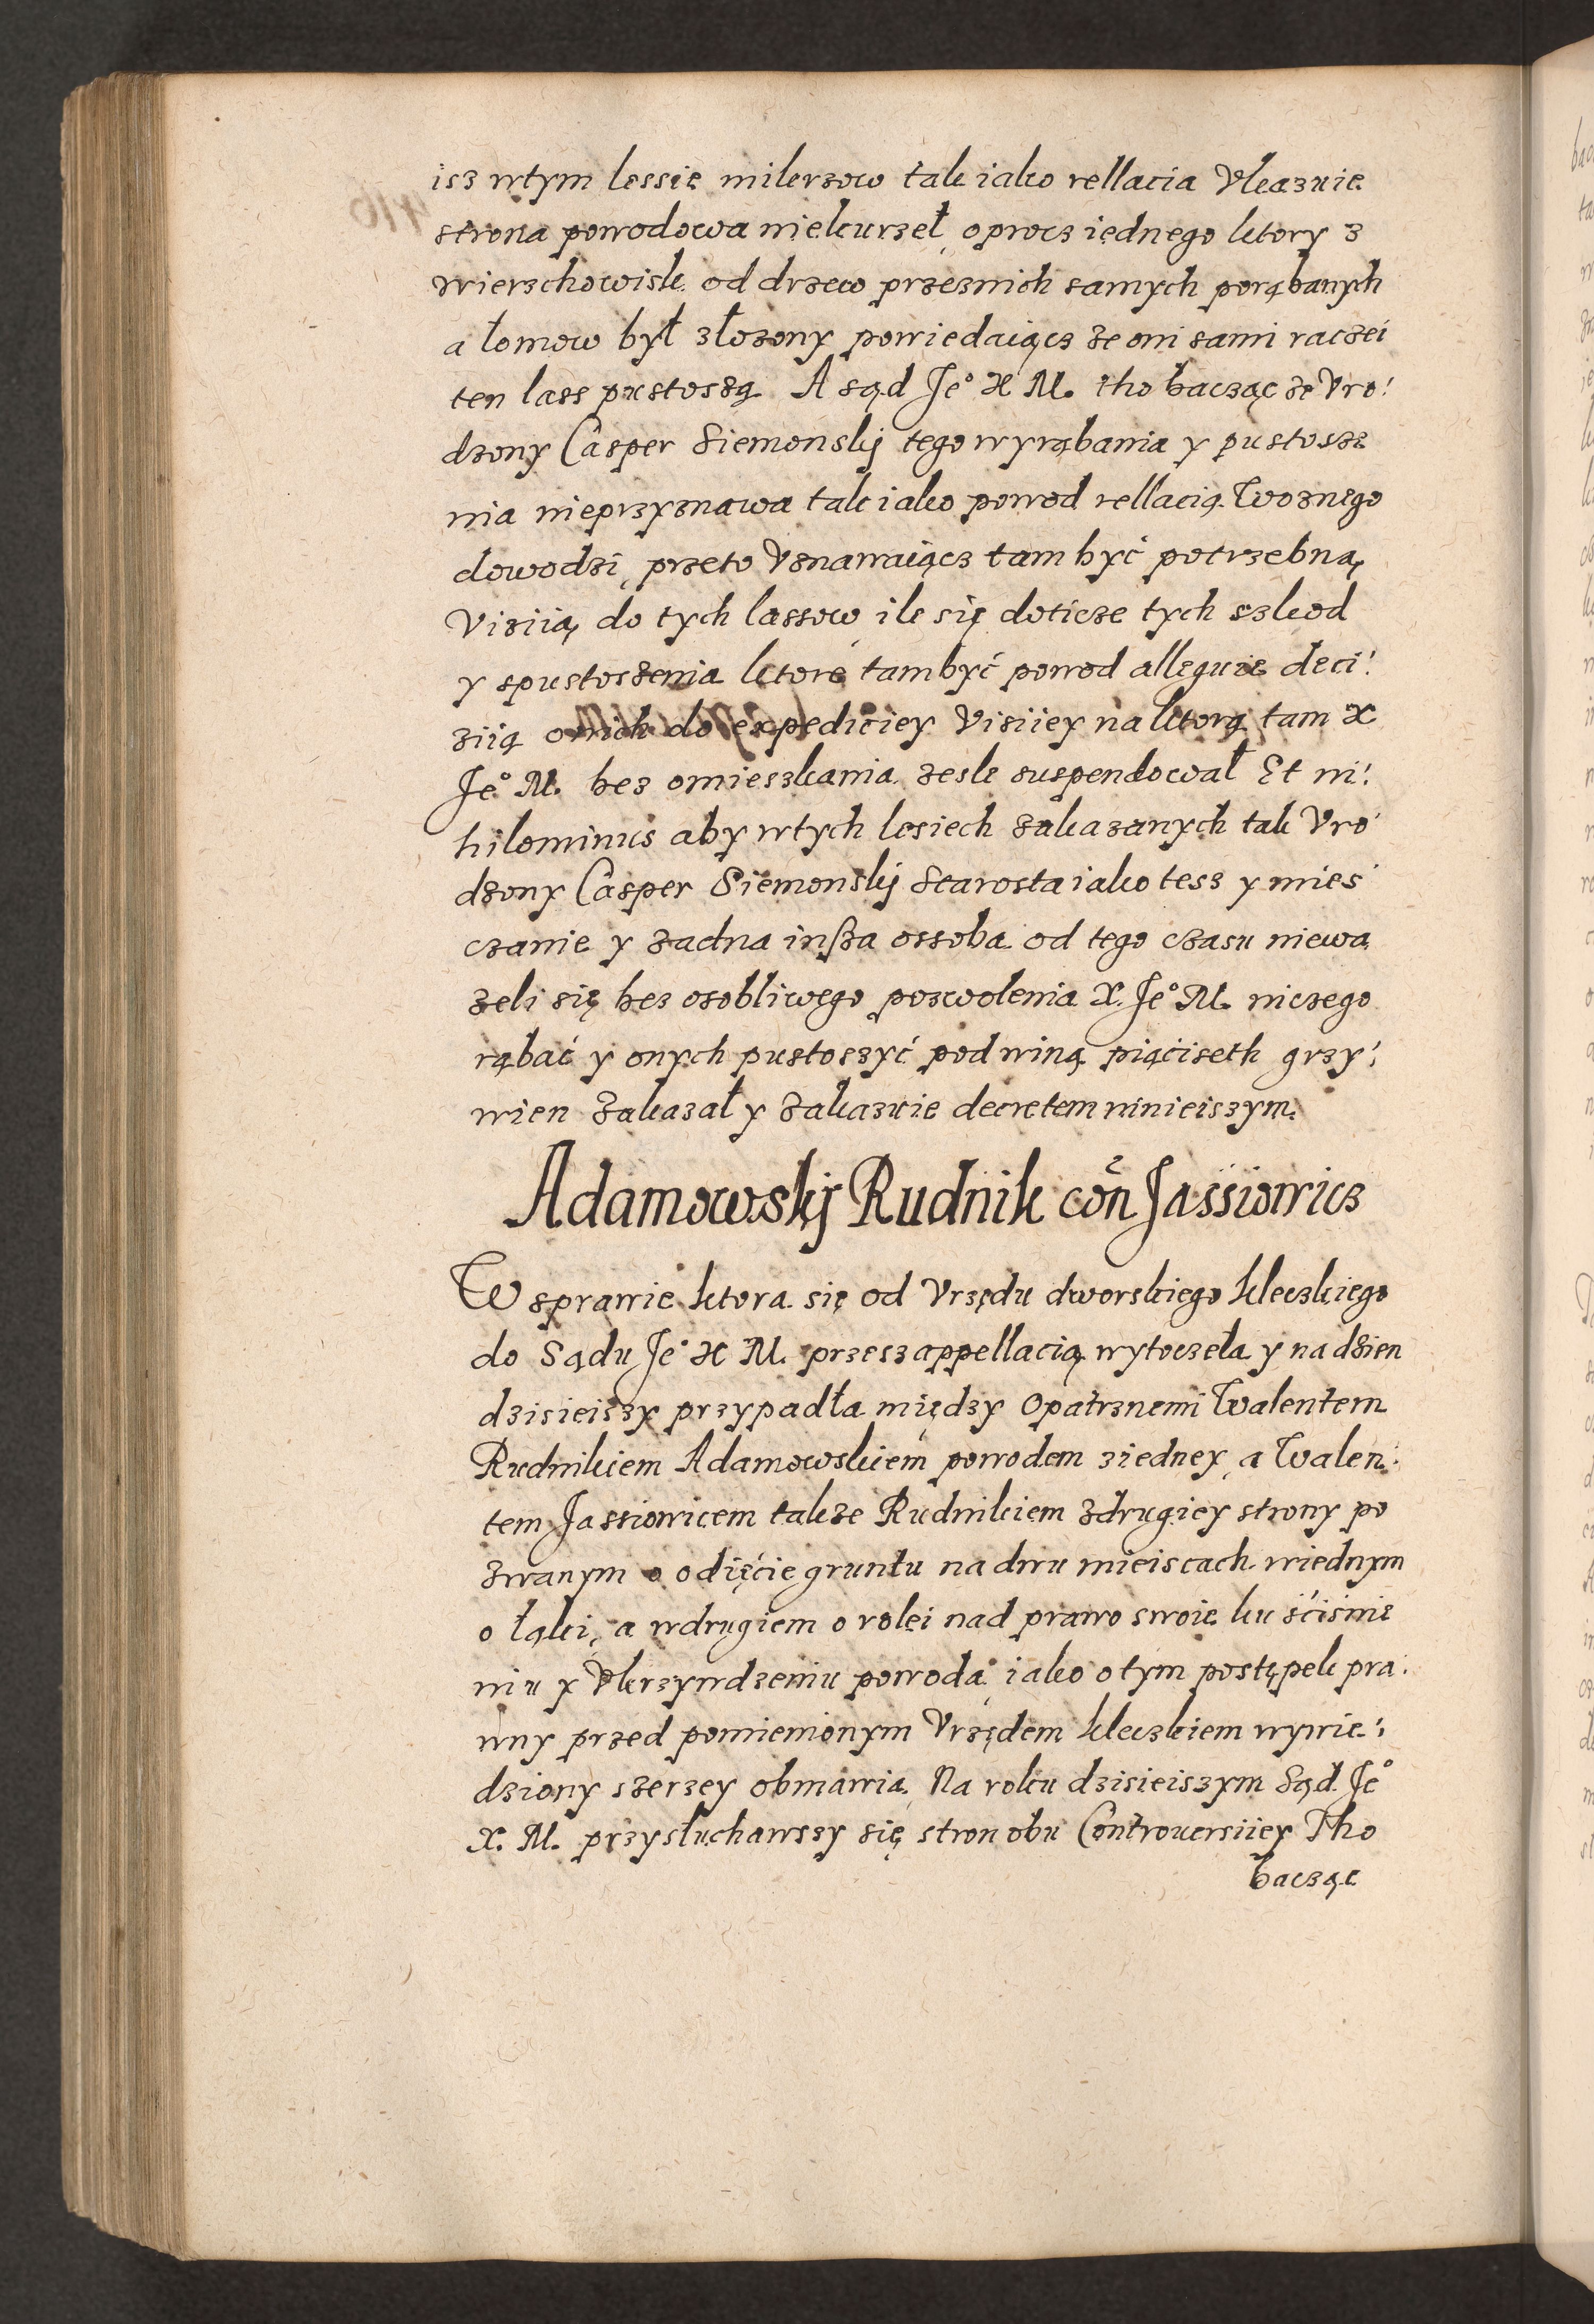 isz wtym lessie milerzow tak iako rellacia Vkazuie
strona powodowa niekurzeł oprocz iednego ktory z
wierzchowisk od drzew przeznich samych porąbanych
a łomow był złozony powiedaiącz ze oni sami raczei
ten lass pustoszą A sąd Je° X M. tho bacząc ze Vro:
dzony Casper Siemonskj tego wyrąbania y pustosze
nia nieprzyznawa tak iako powod rellacią Woznego
dowodzi, przeto Vznawaiącz tam być potrzebną
Viziią do tych lassow ile się doticze tych szkod
y spustoszenia ktore tambyć powod alleguie deci:
ziią onich do expediciey Visiiey na ktorą tam X
Je° M. bez omieszkania zesle suspendował Et ni:
hilominus aby wtych lesiech zakazanych tak Vro
dzony Casper Siemonskj Starosta iako tesz y mies
czanie y zadna inßza ossoba od tego czasu niewa
zeli się bez osobliwego pozwolenia X. Je° M. niczego
rąbać y onych pustoszyć pod winą piąciseth grzy:
wien zakazał y zakazuie decretem ninieiszym.
Adamowskj Rudnik con Jassiowicz
W sprawie ktora się od Vrzędu dworskiego kleczkiego
do Sądu Je° X M. przesz appellacią wytoczeła y na dzien
dzisieiszy przypadła między Opatrznemi Walentem
Rudnikiem Adamowskiem powodem ziedney a Walen:
tem Jassiowicem takze Rudnikiem zdrugiey strony po
zwanym o odięcie gruntu na dwu mieiscach wiednym
o łąki, a wdrugiem o rolei nad prawo swoie ku ściśnie
niu y Vkrzywdzeniu powoda iako o tym postępek pra:
wny przed pomienionym Vrzędem kleczkiem wywie:
dziony szerzey obmawia, Na roku dzisieiszym Sąd Je°
X. M. przysłuchawszy się stron obu Controuersiiey Tho
bacząc